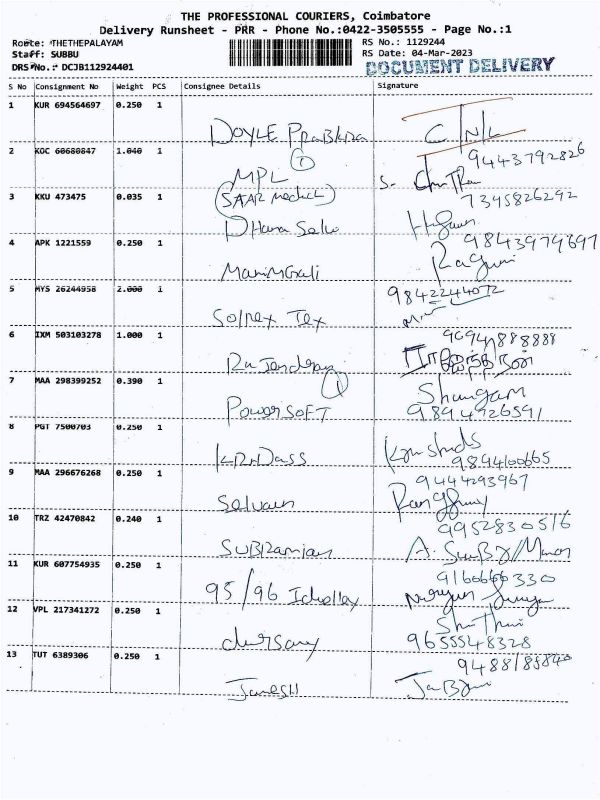 THE PROFESSIONAL COURIERS, Coimbatore
Delivery Runsheet - PRR - Phone No.:0422-3505555 - Page No.:1
Route: THETHEPALAYAM
RS No.: 1129244
Staff: SUBBU
RS Date: 04-Mar-2023
DRS No.: DCJB112924401
DOCUMENT DELIVERY
S No Consignment No Weight PCS Consignee Details Signature
1 KUR 694564697 0.250 1
DOYLE Prabhra C/N/L
2 KOC 60680847 1.040 1
9443792826
MPL 1
3 KKU 473475 0.035 1
(SAAR Medical)
7345826292
Dhana Selvi
4 APK 1221559 0.250 1
9843979697
Raguni
5 MYS 26244958 2.000 1
9842244072
Solnex Tex
6 IXM 503103278 1.000 1
9094888888
Rajendran
7 MAA 298399252 0.390 1
1
Shangam
PowerSoft 9894926591
8 PGT 7500703 0.250 1
9894100665
9 MAA 296676268 0.250 1
9444293967
Selvam
10 TRZ 42470842 0.240 1
9952830516
SUBRamian
11 KUR 607754935 0.250 1
9160666330
95/96
12 VPL 217341272 0.250 1
9655548328
13 TUT 6389306 0.250 1
Janesh